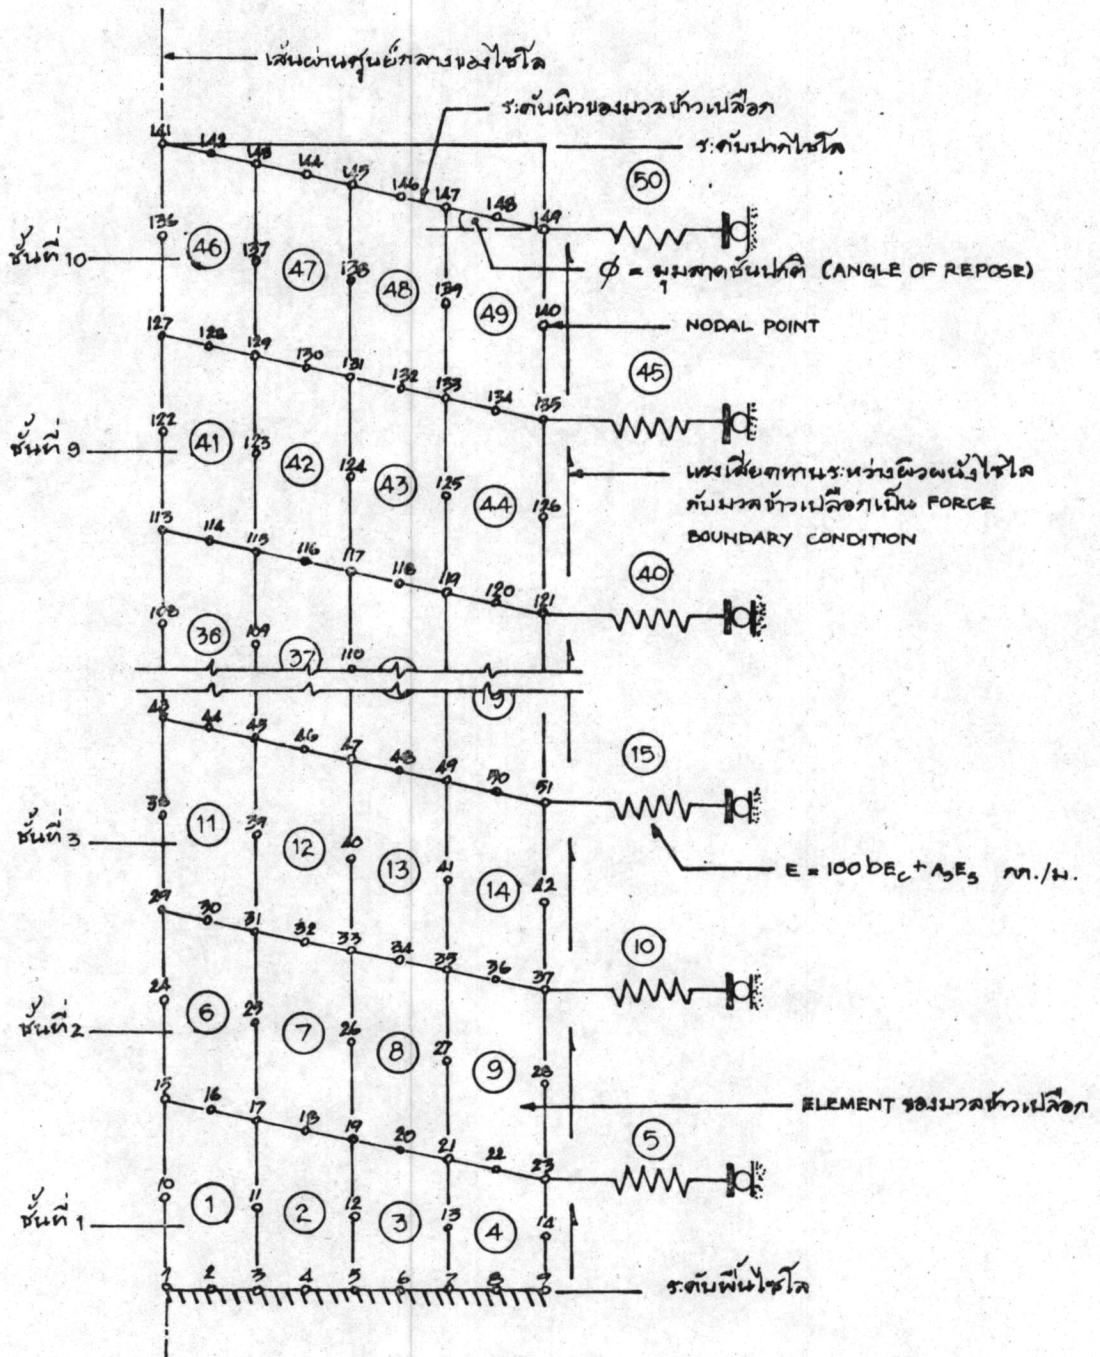 เส้นผ่านศูนย์กลางของไซโล
ระดับผิวของมวลข้าวเปลือก
141 142 143 144 145 146 147 148 149
ระดับปากไซโล
50
ชั้นที่ 10
136 46 137 47 138 48 139 49 140
φ = มุมลาดชันปกติ (ANGLE OF REPOSE)
NODAL POINT
127 128 129 130 131 132 133 134 135
45
ชั้นที่ 9
122 41 123 42 124 43 125 44 126
แรงเสียดทานระหว่างผิวผนังไซโล
กับมวลข้าวเปลือกเป็น FORCE
BOUNDARY CONDITION
113 114 115 116 117 118 119 120 121
40
108 36 109 37 110
19
43 44 45 46 47 48 49 50 51
15
ชั้นที่ 3
38 11 39 12 40 13 41 14 42
E = 100bE_c + A_sE_s กก./ม.
29 30 31 32 33 34 35 36 37
10
ชั้นที่ 2
24 6 25 7 26 8 27 9 28
15 16 17 18 19 20 21 22 23
ELEMENT ของมวลข้าวเปลือก
5
ชั้นที่ 1
10 1 11 2 12 3 13 4 14
1 2 3 4 5 6 7 8 9
ระดับพื้นไซโล